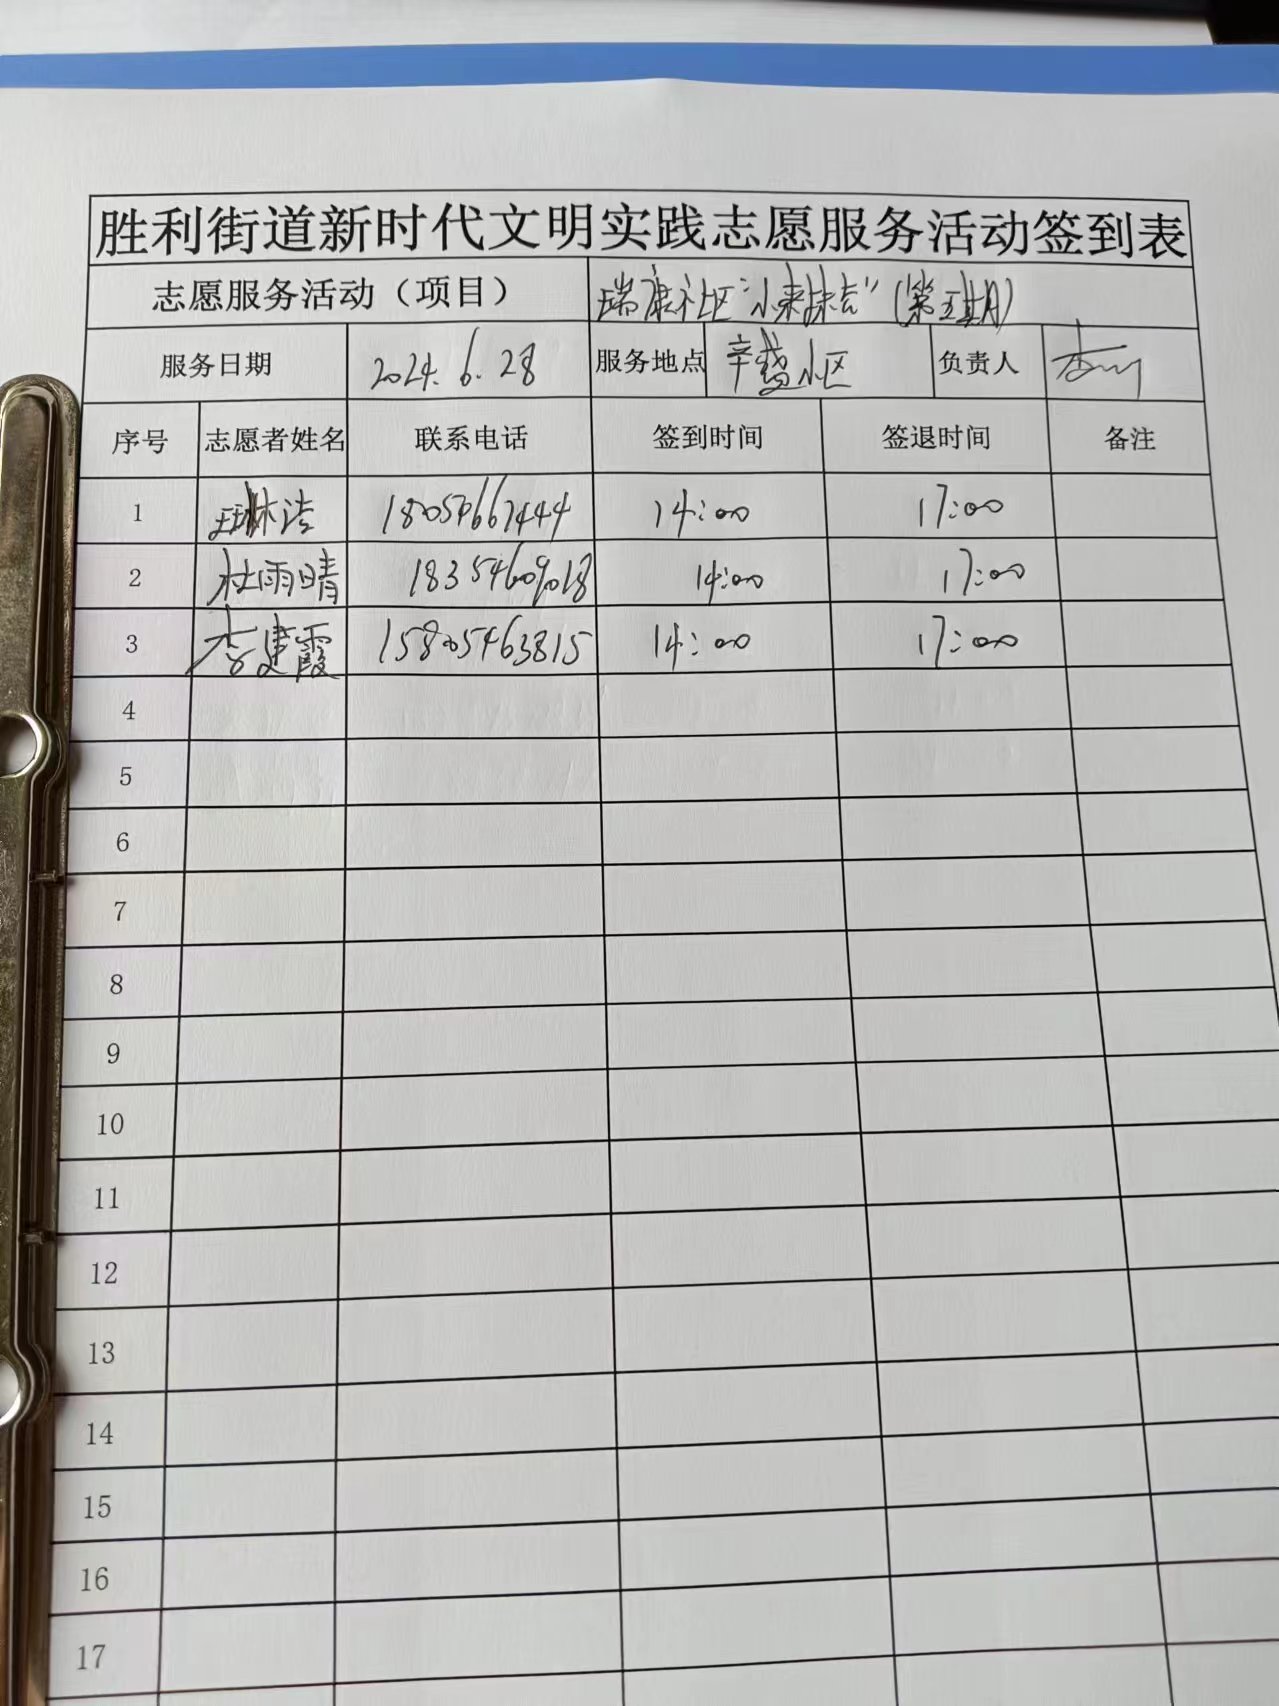 胜利街道新时代文明实践志愿服务活动签到表
志愿服务活动（项目） 瑞康社区“小来抹去”（第五期）
服务日期 2024.6.28 服务地点 辛小区 负责人
序号 志愿者姓名 联系电话 签到时间 签退时间 备注
1 18054667444 14:00 17:00
2 杜雨晴 18354609018 14:00 17:00
3 李建霞 15805463815 14:00 17:00
4
5
6
7
8
9
10
11
12
13
14
15
16
17